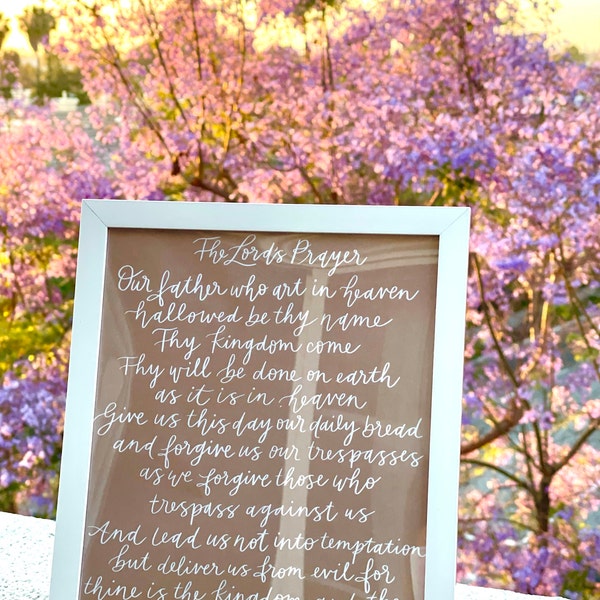 The Lord's Prayer
Our father who art in heaven
hallowed be thy name
Thy Kingdom come
Thy will be done on earth
as it is in heaven
Give us this day our daily bread
and forgive us our trespasses
as we forgive those who
trespass against us
And lead us not into temptation
but deliver us from evil for
thine is the kingdom and the